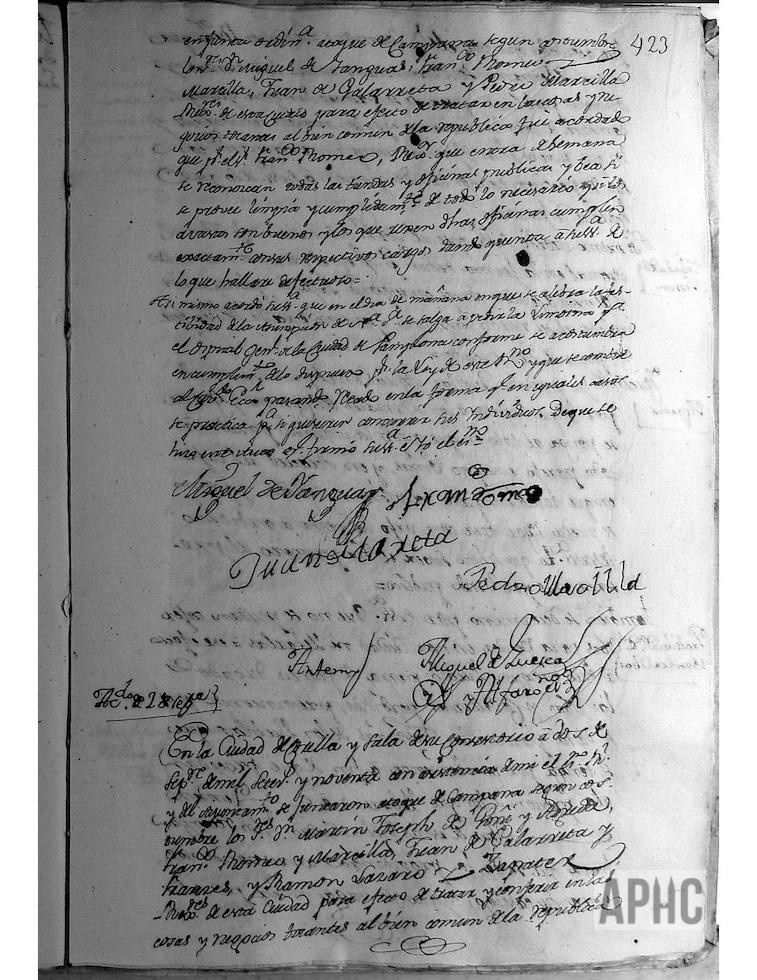 423
en Junta ordin.ª a toque de Campana segun costumbre
los S.res D.n Miguel de Yanguas, Fran.co Thomeo
Marcilla, Juan de Galarreta y Pedro Marcilla
Reg.res de esta Ciudad para efecto de tratar en las cosas y ne
gocios tocantes al bien comun de la republica fue acordado
que p.r el S.r Fran.co Thomeo, Reg.or que entra de semana
se reconozcan todas las tiendas y oficinas publicas y bea si
se provee limpia y cumplidam.te de todo lo necesario
abastos son buenos y los que tienen dhas oficinas cumplen
exactam.te en sus respectivos cargos dando quenta a su ss.ª de
lo que hallare defectuoso =
Asi mismo acordó su ss.ª que en el dia de mañana en que se celebra la fes-
tibidad de la Asumpcion de N.ª S.ª se salga a pedir la limosna p.ª
el Ospital Gen.l de la Ciudad de Pamplona conforme se acostumbra
en cumplim.to de lo dispuesto p.r la Ley de este R.no y que se combide
al Ecco pasando recado en la forma q.e en iguales casos
se practica p.ª si quisieren concurrir sus Individuos, de que se
hizo este auto q.e firmó su ss.ª é Yo el es.no
Miguel de Yanguas Fran.co Thomeo
Juan de Galarreta
Pedro Marcilla
Antemi Miguel de Luesea
y Alfaro es.no
Ac.do de 2 de sep.re
En la Ciudad de Corella y Sala de su Consistorio a dos de
Sep.re de mil setez.s y noventa con asistencia de mi el es.no R.l
y del Ayuntam.to se juntaron a toque de Campana segun cos-
tumbre los S.res D.n Martin Joseph de Goñi y Azpilla,
Fran.co Thomeo y Marcilla, Juan de Galarreta y
Frances, y Ramon Lazaro y Zapater
Reg.res de esta Ciudad para efecto de tratar y conferir en las
cosas y negocios tocantes al bien comun de la republica
APHC